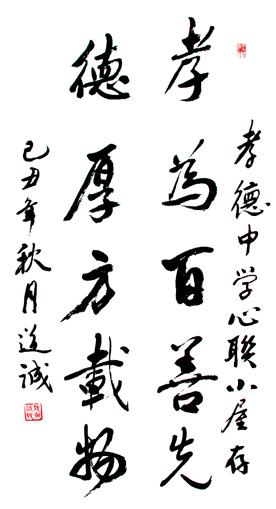 孝德中学心聯小屋存
孝為百善先
德厚方載物
己丑年秋月道诚